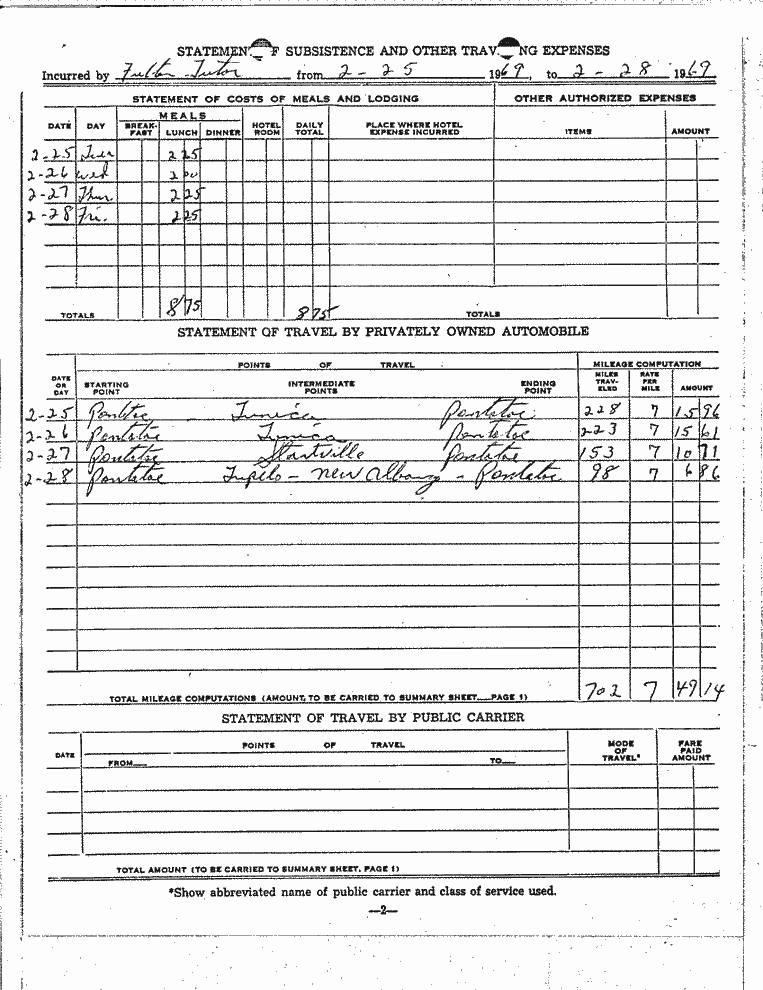 STATEMEN F SUBSISTENCE AND OTHER TRAV NG EXPENSES
Incurred by Fulton Tutor from 2-25 1969, to 2-28 1969
STATEMENT OF COSTS OF MEALS AND LODGING OTHER AUTHORIZED EXPENSES
MEALS
DATE DAY BREAK-FAST LUNCH DINNER HOTEL ROOM DAILY TOTAL PLACE WHERE HOTEL EXPENSE INCURRED ITEMS AMOUNT
2-25 Tues 2 25
2-26 Wed 2 00
2-27 Thur. 2 25
2-28 Fri. 2 25
TOTALS 8 75 8 75 TOTALS
STATEMENT OF TRAVEL BY PRIVATELY OWNED AUTOMOBILE
POINTS OF TRAVEL MILEAGE COMPUTATION
DATE OR DAY STARTING POINT INTERMEDIATE POINTS ENDING POINT MILES TRAV-ELED RATE PER MILE AMOUNT
2-25 Pontotoc Tunica Pontotoc 228 7 15 96
2-26 Pontotoc Tunica Pontotoc 223 7 15 61
2-27 Pontotoc Starkville Pontotoc 153 7 10 71
2-28 Pontotoc Tupelo - New Albany - Pontotoc 98 7 6 86
TOTAL MILEAGE COMPUTATIONS (AMOUNT, TO BE CARRIED TO SUMMARY SHEET PAGE 1) 702 7 49 14
STATEMENT OF TRAVEL BY PUBLIC CARRIER
DATE POINTS OF TRAVEL MODE OF TRAVEL* FARE PAID AMOUNT
FROM TO
TOTAL AMOUNT (TO BE CARRIED TO SUMMARY SHEET, PAGE 1)
*Show abbreviated name of public carrier and class of service used.
—2—